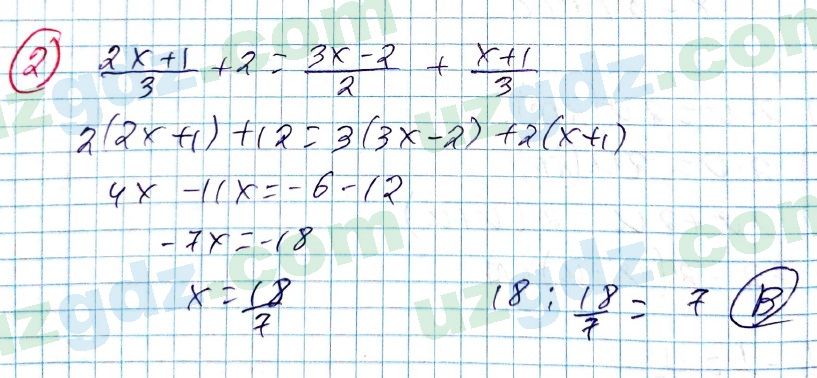 2 (2x+1)/3 + 2 = (3x-2)/2 + (x+1)/3
2(2x+1) + 12 = 3(3x-2) + 2(x+1)
4x - 11x = -6 - 12
-7x = -18
x = 18/7 18 : 18/7 = 7 B
uzgdz.com
uzgdz.com
uzgdz.com
uzgdz.com